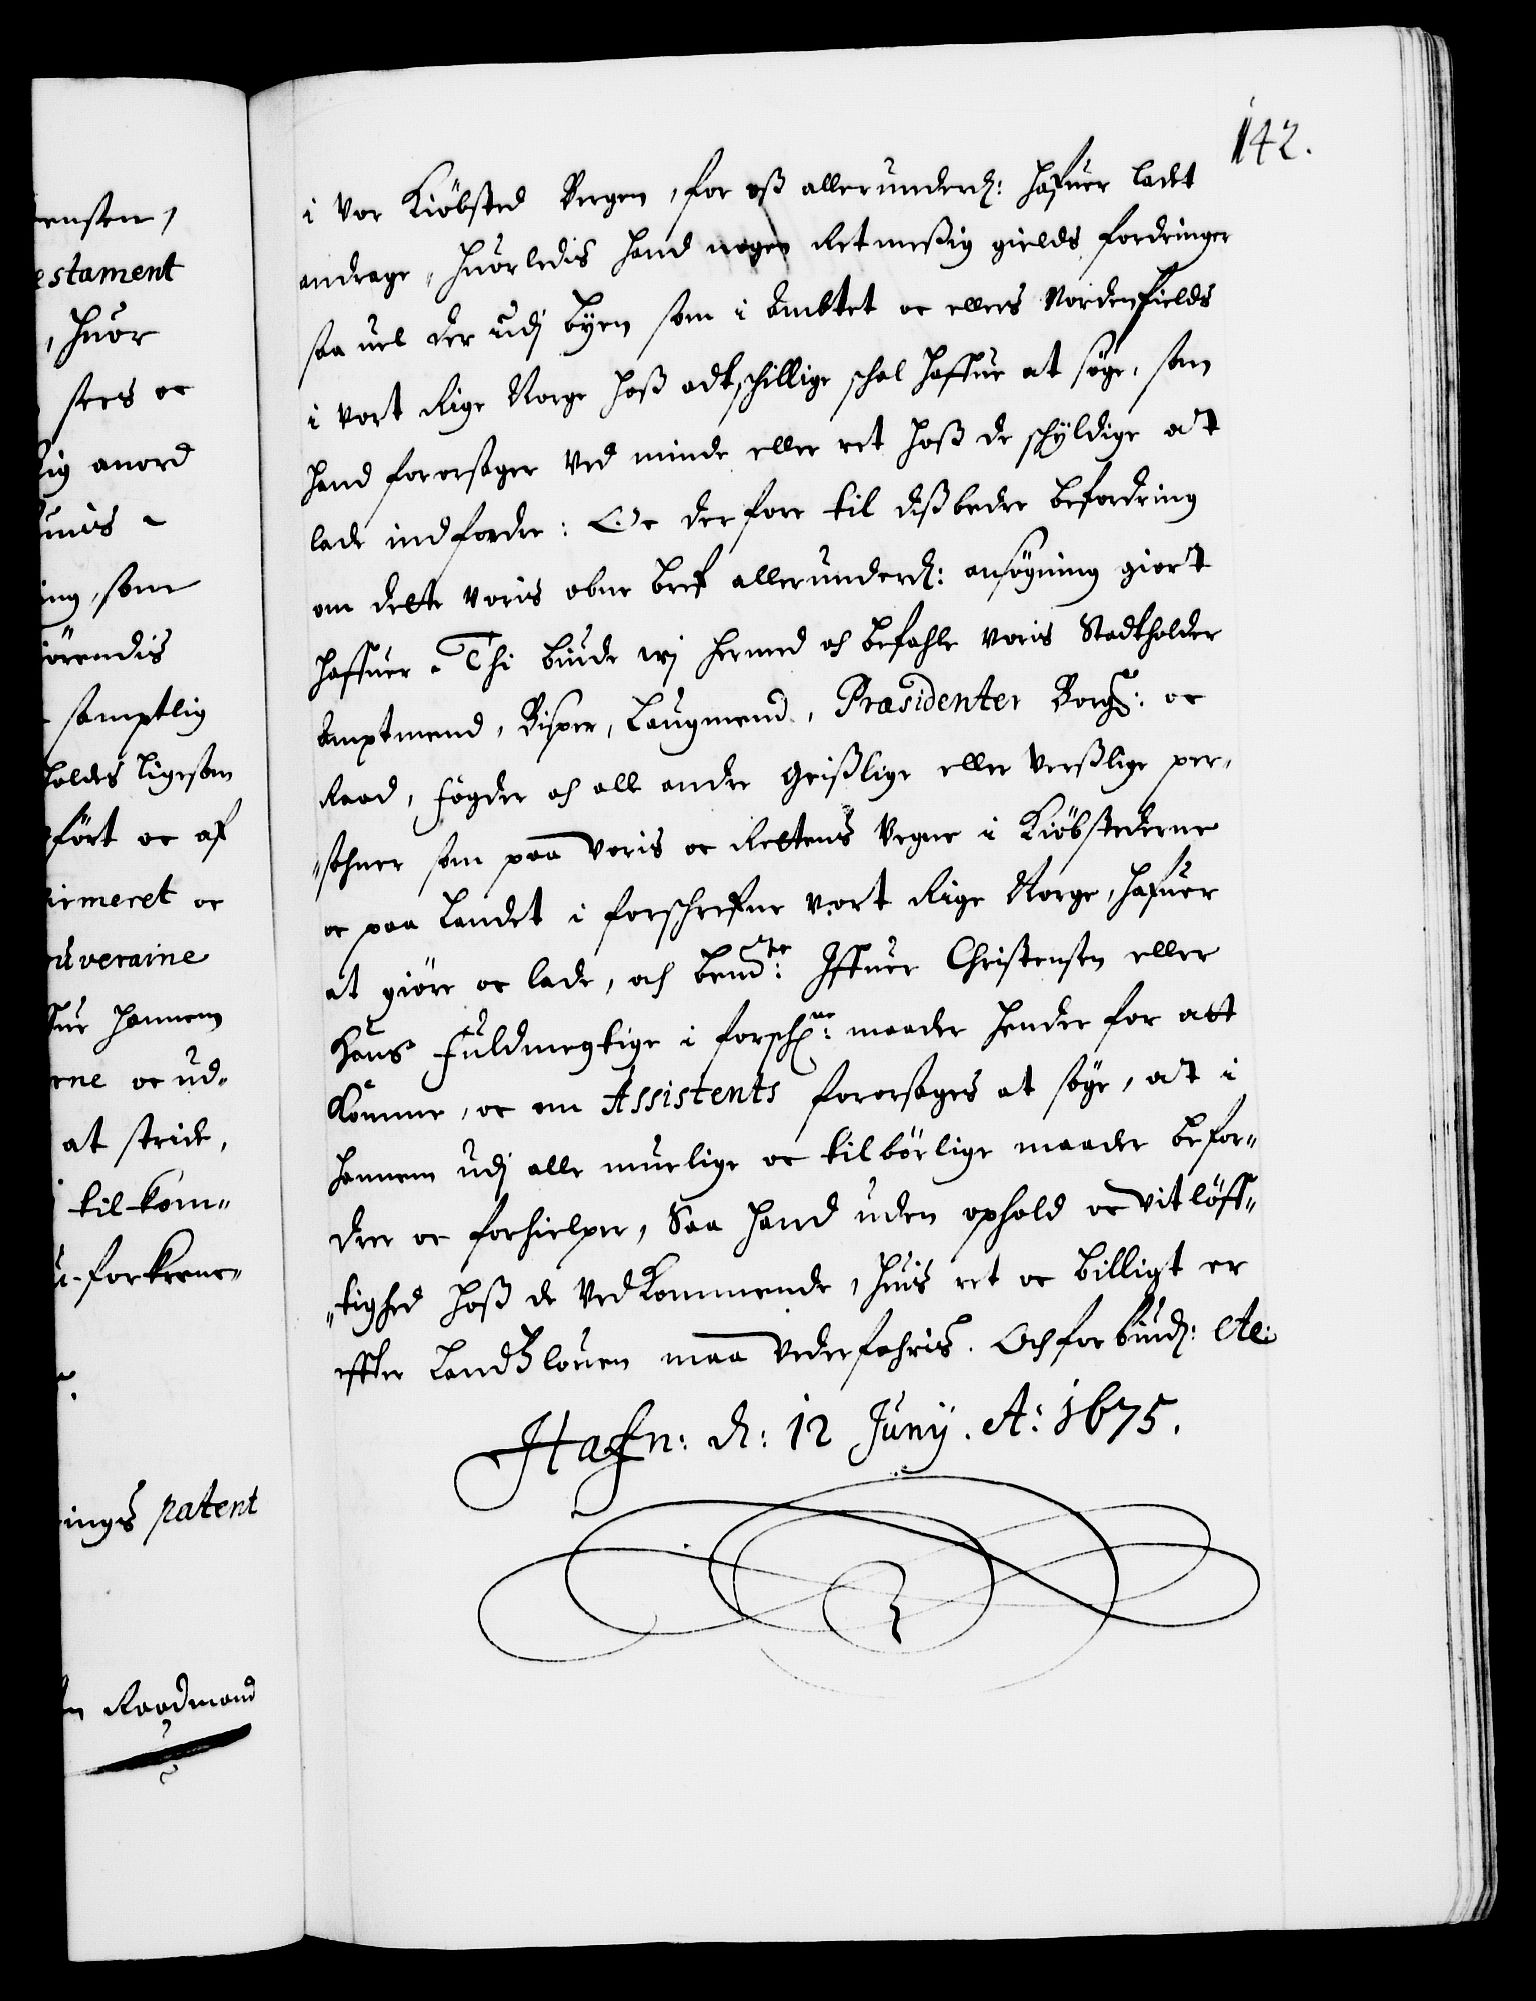 142.
i vor Kiöbsted Bergen, for oß allerunderd: hafuer ladet
andrage, huorledis hand nogen Retmeßig gields fordringer
saa uel der udj byen som i Ambtet oc ellers Nordenfields
i vort Rige Norge hoß adtschillige schal haffue at söge, som
hand foraarsages ved minde eller ret hoß de schyldige at
lade indfordre: Oc derfore til dißbedre befordring
om dette voris obne bref allerunderd: ansögning giort
haffuer. Thi biude wj hermed och befahle voris Stadtholder
Amptmend, Bisper, Laugmend, Præsidenter Borg: oc
Raad, fogder och alle andre Geistlige eller Verdslige per-
sohner som paa voris oc Rettens Vegne i Kiöbstederne
oc paa Landet i forschrefne vort Rige Norge, hafuer
at giöre oc lade, och bemte: Iffuer Christensen eller
Hans fuldmegtige i forschne: maader hender for att
komme, oc om Assistents foraarsages at söge, at i
hannem udj alle muelige oc tilbörlige maader befor-
drer oc forhielper, Saa hand uden ophold oc vitlöff-
tighed hoß de Vedkommende, huis ret oc billigt er
effter Landzlouen maa vederfahris. Och forbiud: etc:
Hafn: d: 12 Junij. A: 1675.
ensen,
estament
, huor
sees oc
lig anord
ing, som
samptlig
holdes ligesom
fört oc af
firmeret oc
ouveraine
hannem
rne oc ud-
at stride,
til kom-
ings patent
Raadmand